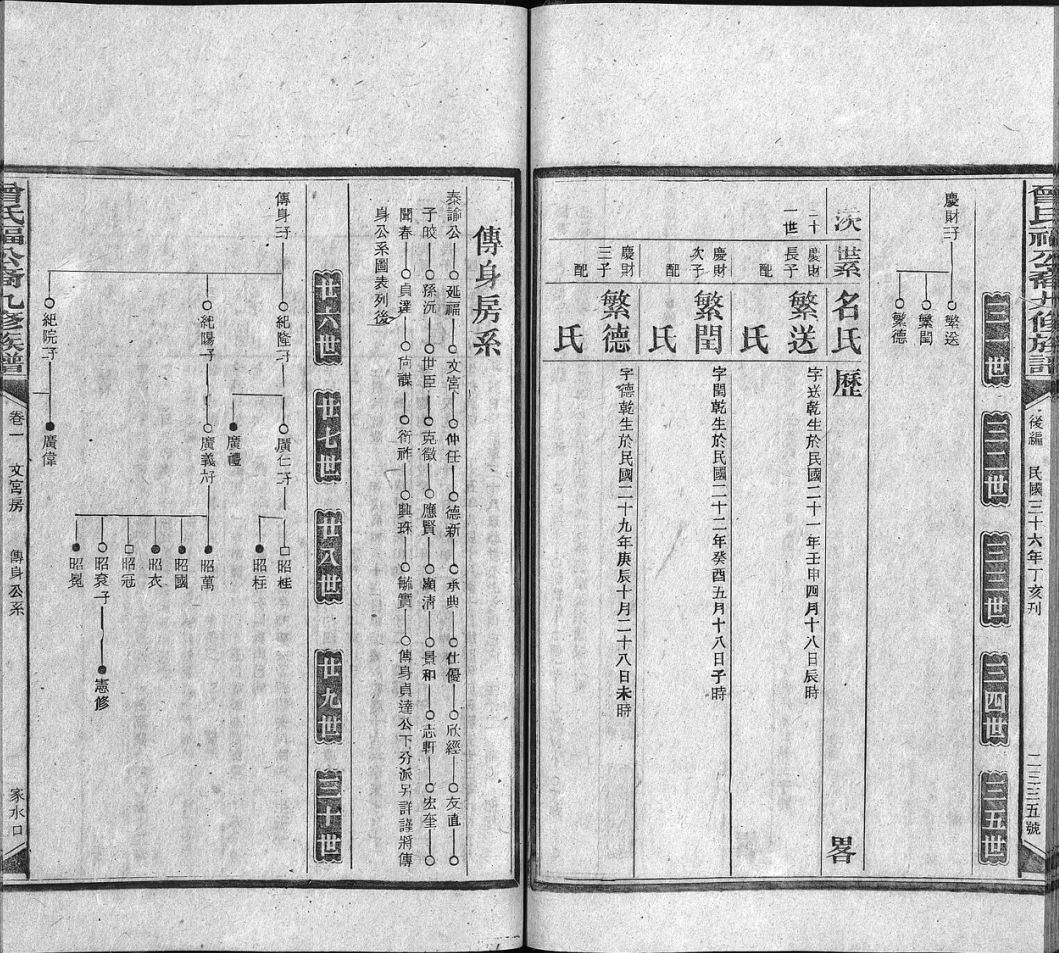 曾氏福公裔九修族譜
後編
民國三十六年丁亥刊
二三三五號
三一世
三二世
三三世
三四世
三五世
慶財子
繁送
繁閏
繁德
世系
名氏
歷
畧
二十一世
慶財長子
繁送
字送乾生於民國二十一年壬申四月十八日辰時
配
氏
慶財次子
繁閏
字閏乾生於民國二十二年癸酉五月十八日子時
配
氏
慶財三子
繁德
字德乾生於民國二十九年庚辰十月二十八日未時
配
氏
傳身房系
泰諭公 延福 文宮 仲任 德新 承典 仕優 欣經 友直
子皎 孫沅 世臣 克徵 應賢 顯清 景和 志軒 宏奎
聞春 貞達 尚謀 衍祚 興珠 毓寶 傳身貞達公下分派另詳謹將傳
身公系圖表列後
廿六世
廿七世
廿八世
廿九世
三十世
傳身子
紀隆子
廣仁子
昭桂
昭枉
廣禮
紀陽子
廣義子
昭萬
昭國
昭衣
昭冠
昭袞子
憲修
昭冕
紀院子
廣偉
曾氏福公裔九修族譜
卷一
文宮房
傳身公系
家水口